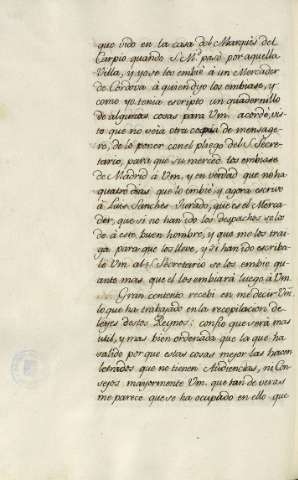 que vido en la casa del Marqués del
Carpio quando S. M. pasó por aquella
Villa, y yo se los embié á un Mercader
de Córdova á quien dijo los embiase, y
como yo tenia escripto un quadernillo
de algunas cosas para Vm. acordé, vis
to que no veia otra copia de mensage-
ro, de lo poner con el pliego del S. Secre-
tario, para que su merced los embiase
de Madrid á Vm, y en verdad que no ha
quatro dias que lo embié y agora escrivo
á Luis Sanches Jurado, que es el Merca-
der, que si no han ido los despachos se lo
de á este buen hombre, y que me los trai
ga para que los lleve, y si han ido escriba-
le Vm al S. Secretario se los embie qu
ante mas que el los embiará luego á Vm.
Gran contento recebí en me decir Vm.
lo que ha trabajado en la recopilacion de
leyes destos Reynos; confio que será mas
util, y mas bien ordenada que la que ha
valido por que estas cosas mejor las hacen
letrados que no tienen Audiencias, ni Con
sejos mayormente Vm. que tan de veras
me parece que se ha ocupado en ello que